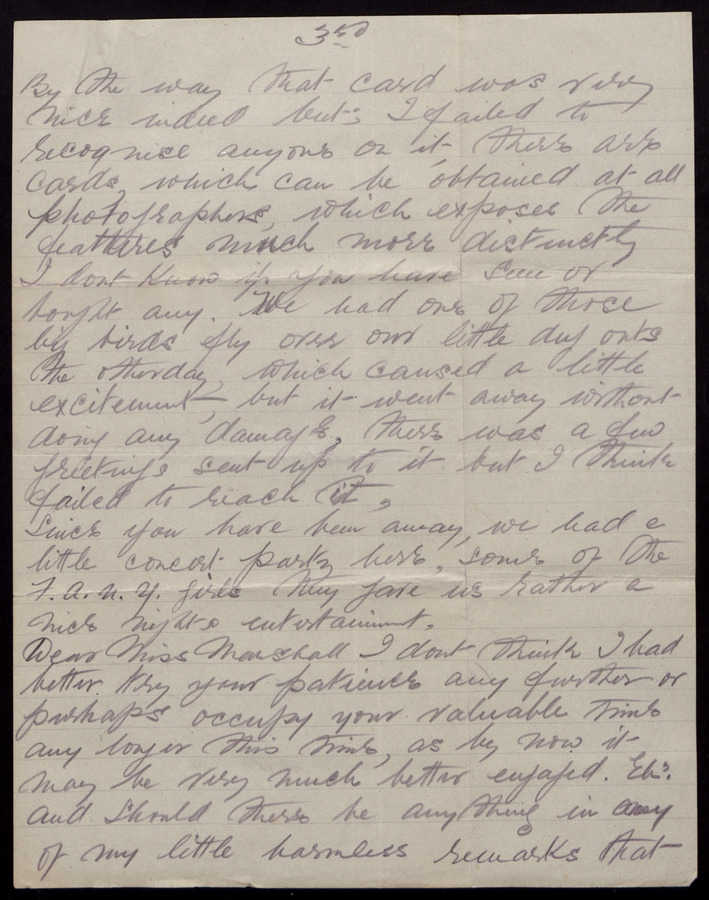 3rd
By the way that card was very
nice indeed but; I failed to
recognise anyone on it, there are
cards, which can be obtained at all
photographers, which exposes the
feattures much more distinctly
I dont know if you have seen or
bought any. We had one of those
big birds fly over our little dug outs
the otherday, which caused a little
excitement, but it went away without
doing any damage, there was a few
greetings sent up to it but I think
failed to reach it,
Since you have been away, we had a
little concert party here, some of the
F.A.N.Y. girls they gave us rather a
nice nights entertainment.
Dear Miss Marshall I dont think I had
better try your patience any further or
perhaps occupy your valuable time
any longer this time, as by now it
may be very much better engaged. Eh?
and should there be anything in any
of my little harmless remarks that